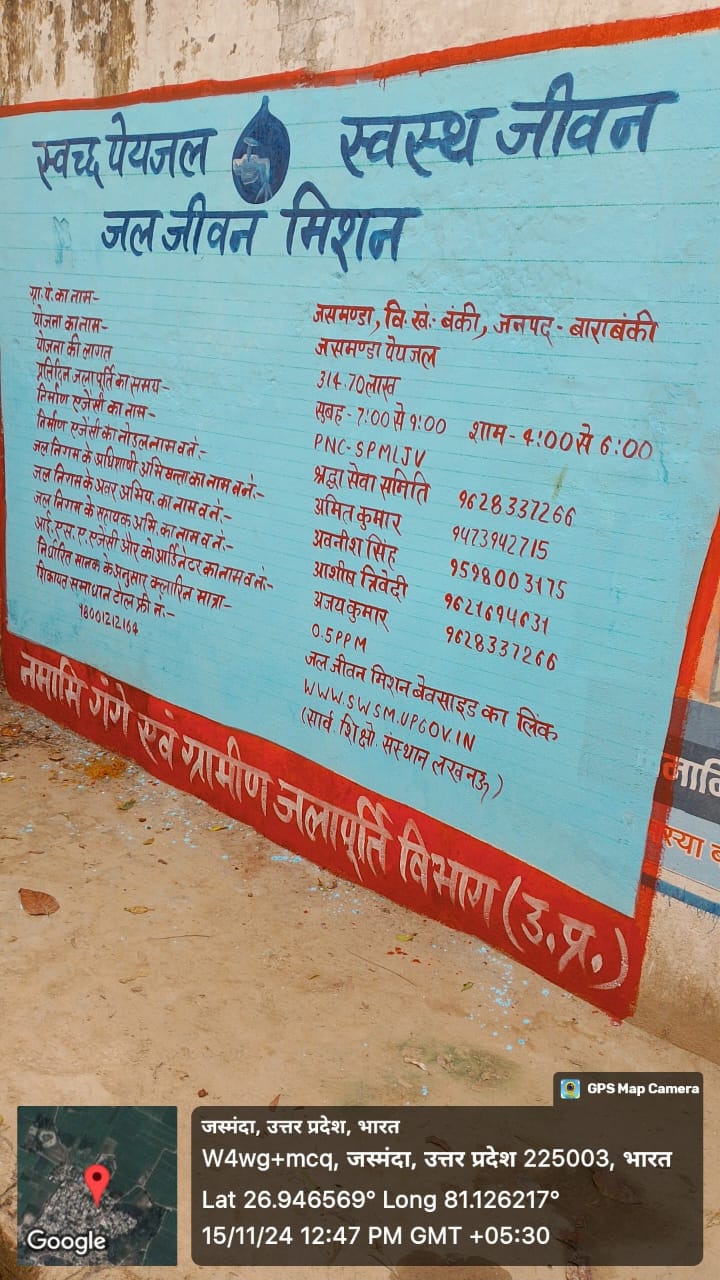 स्वच्छ पेयजल स्वस्थ जीवन
जल जीवन मिशन
ग्रा. पं. का नाम- जसमण्डा, वि. खं:- बंकी, जनपद - बाराबंकी
योजना का नाम- जसमण्डा पेयजल
योजना की लागत 314.70लाख
प्रतिदिन जलापूर्ति का समय- सुबह - 7:00 से 9:00 शाम - 4:00 से 6:00
निर्माण एजेंसी का नाम- PNC-SPMLJV
निर्माण एजेंसी का नोडल नाम व नं:- श्रद्धा सेवा समिति 9628337266
जल निगम के अधिशाषी अभियन्ता का नाम व नं:- अमित कुमार 9473942715
जल निगम के अवर अभिय. का नाम व नं:- अवनीश सिंह 9598003175
जल निगम के सहायक अभि. का नाम व नं:- आशीष त्रिवेदी 9621694631
आई. एस. ए. एजेंसी और कोआर्डिनेटर का नाम व नं:- अजय कुमार 9628337266
निर्धारित मानक के अनुसार क्लोरिन मात्रा- 0.5PPM
शिकायत समाधान टोल फ्री नं:- जल जीवन मिशन बेवसाइड का लिंक
18001212164 WWW.SWSM.UPGOV.IN
(सार्व. शिक्षो. संस्थान लखनऊ)
नमामि गंगे एवं ग्रामीण जलापूर्ति विभाग (उ.प्र.)
GPS Map Camera
जस्मंदा, उत्तर प्रदेश, भारत
W4wg+mcq, जस्मंदा, उत्तर प्रदेश 225003, भारत
Lat 26.946569° Long 81.126217°
15/11/24 12:47 PM GMT +05:30
Google